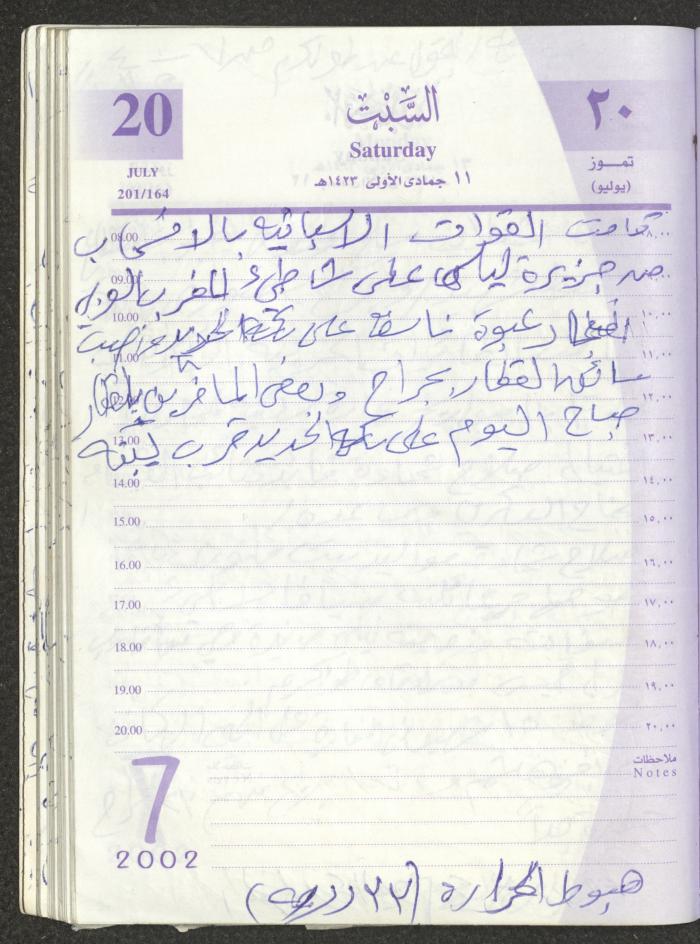 20
السَّبْت
٢٠
Saturday
JULY
تمـوز
201/164
١١ جمادى الأولى ١٤٢٣هـ
(يوليو)
08.00 قامت القوات الاسبانيه بالانسحاب ٨,٠٠
09.00 من جزيرة ليلى على شاطىء المغرب
10.00 انفجار عبوة ناسفة على سكة الحديد ١٠,٠٠
11.00 سائق القطار بجراح وبعض المسافرين ١١,٠٠
12.00 ١٢,٠٠
صباح اليوم على سكة الحديد قرب يبنه
13.00 ١٣,٠٠
14.00 ١٤,٠٠
15.00 ١٥,٠٠
16.00 ١٦,٠٠
17.00 ١٧,٠٠
18.00 ١٨,٠٠
19.00 ١٩,٠٠
20.00 ٢٠,٠٠
ملاحظات
Notes
7
2002
هبوط الحرارة (٣٣ درجه)